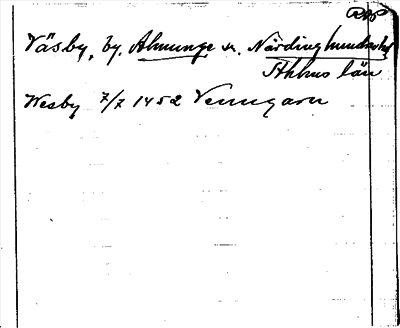 Väsby, by. Almunge sn. Närdinghundra hd
Sthlms län
Wesby 7/7 1452 Venngarn